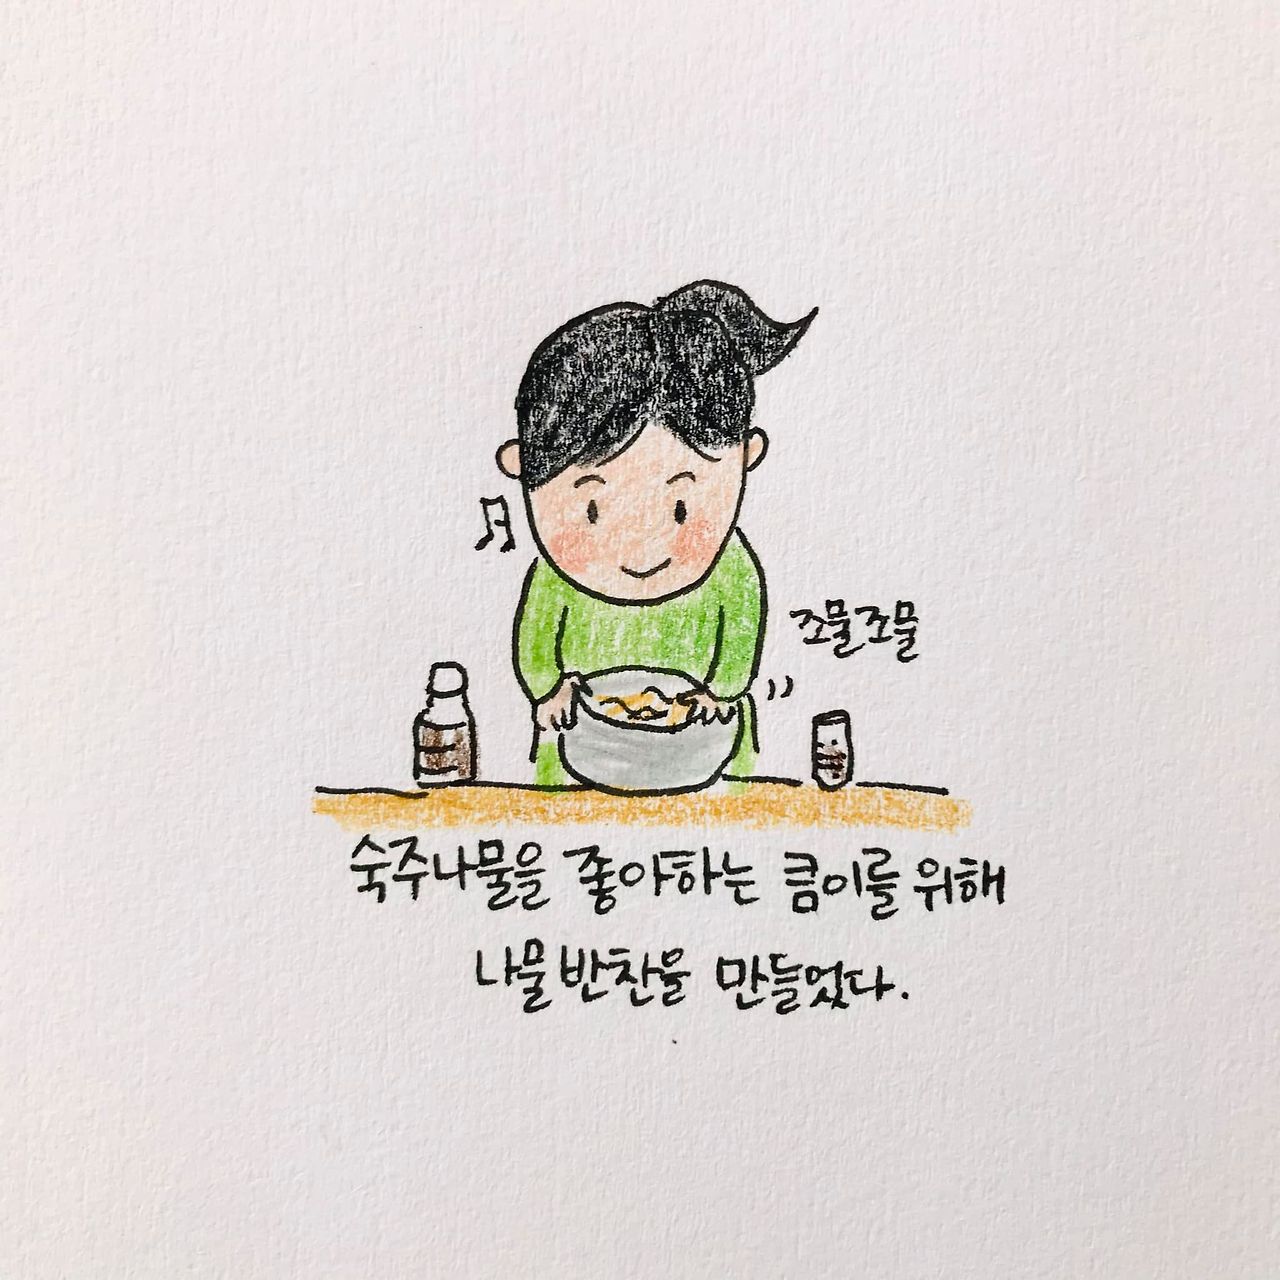 조물조물
숙주나물을 좋아하는 큼이를 위해
나물반찬을 만들었다.